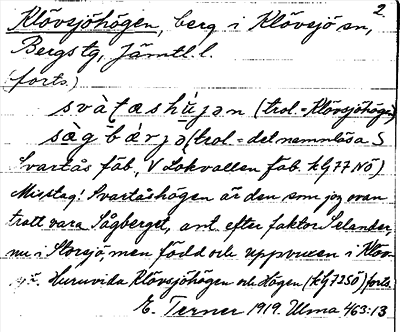 2.
Klövsjöhögen, berg i Klövsjö sn,
Bergs tg, Jämtl. l.
(forts.)
svàtashú̀jən (trol. = Klövsjöhögen)
sàgbárjə (trol. = det namnlösa S
Svartås fäb, V Lokvallen fäb. kG77NÖ)
Misstag! Svartåshögen är den som jag ovan
trott vara Sågberget, ant. efter faktor Selander,
nu i Storsjö, men född och uppvuxen i Klöv-
sjö. Huruvida Klövsjöhögen och Högen (kG73SÖ) forts.
E. Terner 1919. Ulma 463:13